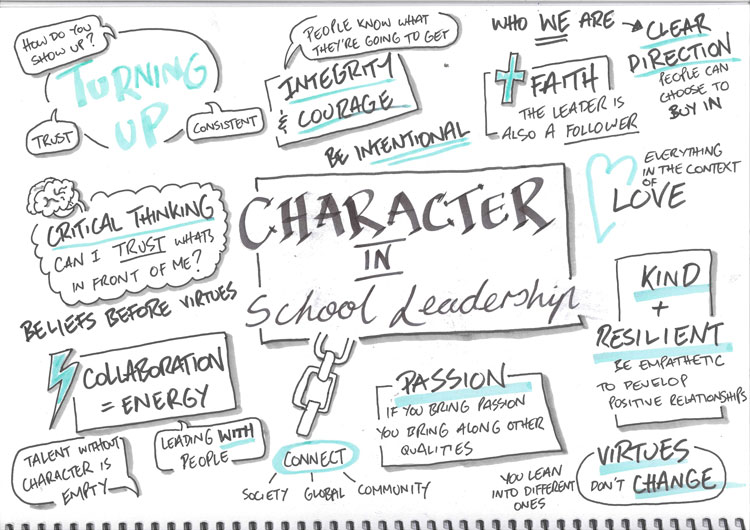 HOW DO YOU
SHOW UP?
TURNING
UP
TRUST
CONSISTENT
PEOPLE KNOW WHAT
THEY'RE GOING TO GET
INTEGRITY
& COURAGE
BE INTENTIONAL
WHO WE ARE
CLEAR
DIRECTION
PEOPLE CAN
CHOOSE TO
BUY IN
FAITH
THE LEADER IS
ALSO A FOLLOWER
CRITICAL THINKING
CAN I TRUST WHATS
IN FRONT OF ME?
BELIEFS BEFORE VIRTUES
CHARACTER
IN
School Leadership
EVERYTHING
IN THE CONTEXT
OF
LOVE
KIND
+
RESILIENT
BE EMPATHETIC
TO DEVELOP
POSITIVE RELATIONSHIPS
COLLABORATION
= ENERGY
TALENT WITHOUT
CHARACTER IS
EMPTY
LEADING WITH
PEOPLE
CONNECT
SOCIETY GLOBAL COMMUNITY
PASSION
IF YOU BRING PASSION
YOU BRING ALONG OTHER
QUALITIES
YOU LEAN
INTO DIFFERENT
ONES
VIRTUES
DON'T CHANGE